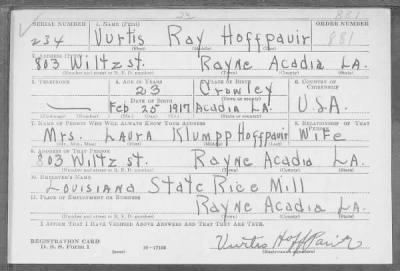 SERIAL NUMBER 1. NAME (Print) ORDER NUMBER
234 Vurtis Ray Hoffpauir 881
(First) (Middle) (Last)
2. ADDRESS (Print)
803 Wiltz st. Rayne Acadia LA.
(Number and street or R. F. D. number) (Town) (County) (State)
3. TELEPHONE 4. AGE IN YEARS 5. PLACE OF BIRTH 6. COUNTRY OF CITIZENSHIP
23 Crowley
DATE OF BIRTH (Town or county)
— Feb 25 1917 Acadia LA. U.S.A.
7. NAME OF PERSON WHO WILL ALWAYS KNOW YOUR ADDRESS 8. RELATIONSHIP OF THAT PERSON
Mrs. Laura Klumpp Hoffpauir Wife
(Mr., Mrs., Miss) (First) (Middle) (Last)
9. ADDRESS OF THAT PERSON
803 Wiltz st. Rayne Acadia LA.
(Number and street or R. F. D. number) (Town) (County) (State)
10. EMPLOYER'S NAME
Louisiana State Rice Mill
11. PLACE OF EMPLOYMENT OR BUSINESS
Rayne Acadia LA.
(Number and street or R. F. D. number) (Town) (County) (State)
I AFFIRM THAT I HAVE VERIFIED ABOVE ANSWERS AND THAT THEY ARE TRUE.
REGISTRATION CARD
D. S. S. Form 1 (over) 16—17105 Vurtis Hoffpauir
(Registrant's signature)